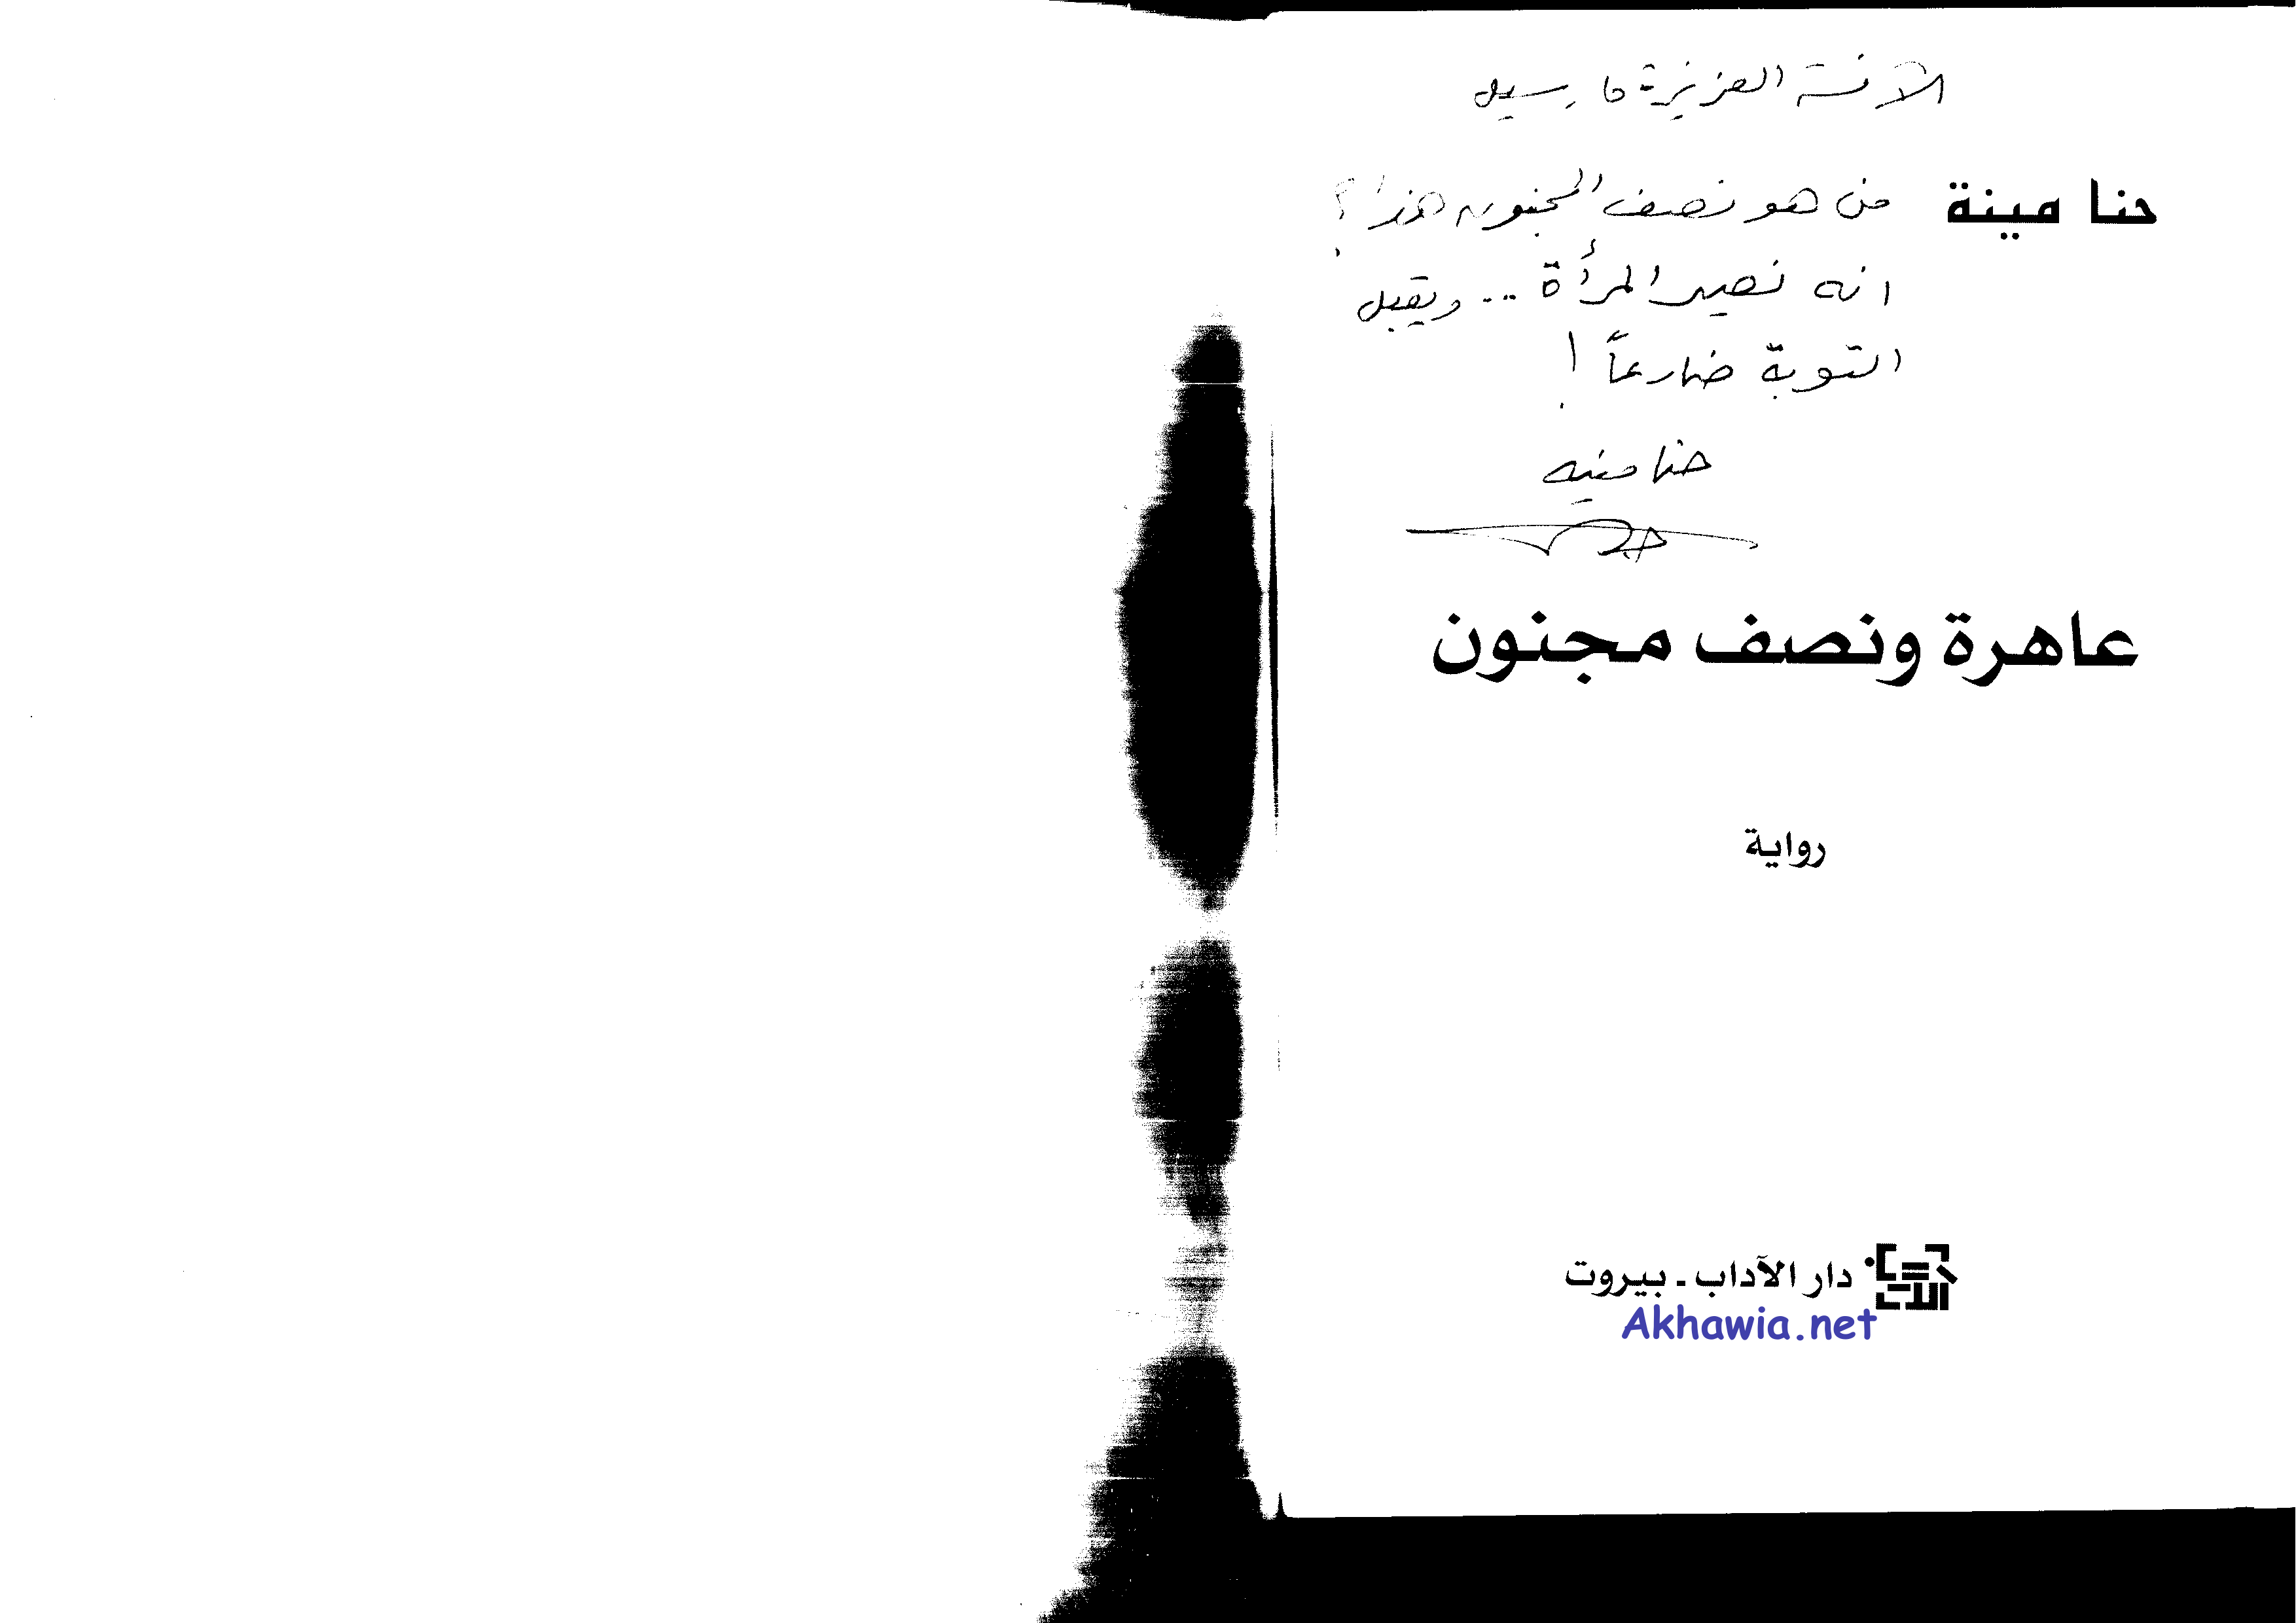 الآنسة العزيزة مارسيل
حنا مينة
من هو نصف المجنون هذا؟
انه نصير المرأة .. ويقبل
التوبة ضارعاً!
حنا مينه
عاهرة ونصف مجنون
رواية
دار الآداب - بيروت
Akhawia.net